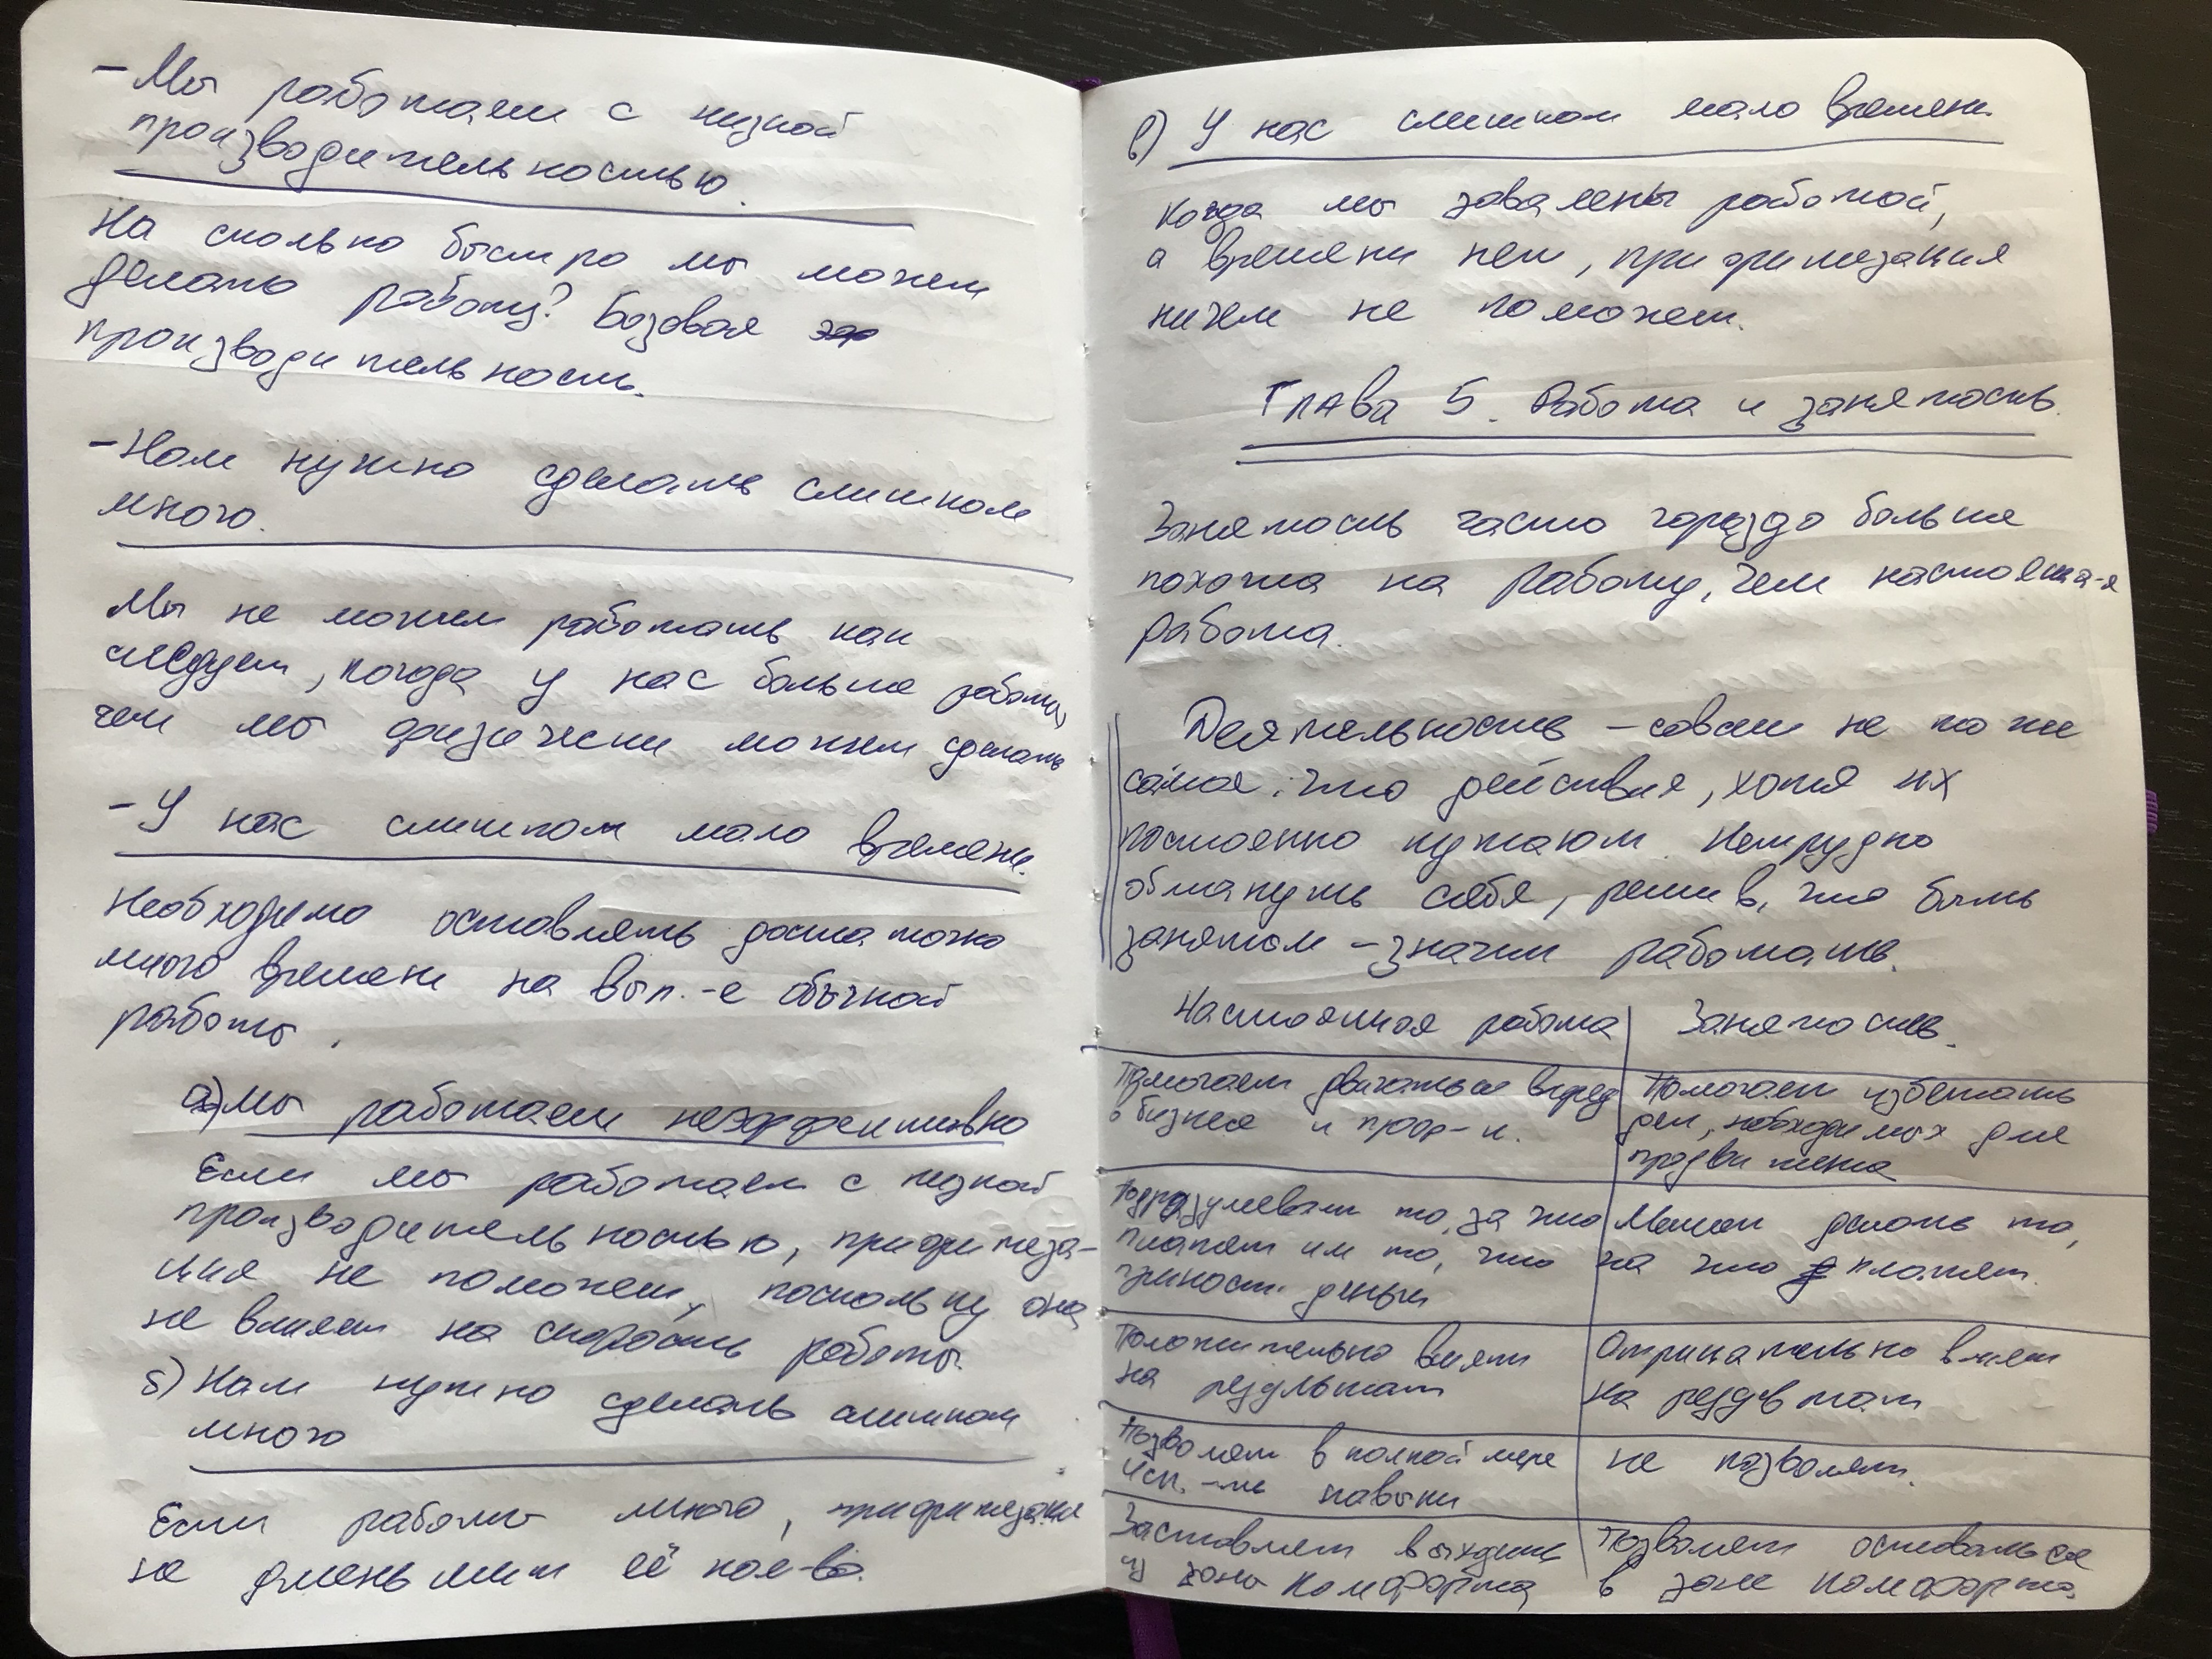 - Мы работаем с низкой
производительностью.
На сколько быстро мы можем
делать работу? Базовая
производительность.
- Нам нужно сделать слишком
много.
Мы не можем работать как
следует, когда у нас больше работы,
чем мы физически можем сделать
- У нас слишком мало времени.
Необходимо оставлять достаточно
много времени на вып.-е обычной
работы.
а) Мы работаем неэффективно
Если мы работаем с низкой
производительностью, приоритеза-
ция не поможет, поскольку она
не влияет на скорость работы.
б) Нам нужно сделать слишком
много
Если работы много, приоритезация
не уменьшит её кол-во.
в) У нас слишком мало времени.
Когда мы завалены работой,
а времени нет, приоритезация
ничем не поможет.
Глава 5. Работа и занятость.
Занятость часто гораздо больше
похожа на работу, чем настояща-я
работа.
Деятельность - совсем не то же
самое, что действия, хотя их
постоянно путают. Нетрудно
обмануть себя, решив, что быть
занятом - значит работать.
Настоящая работа | Занятость.
Помогает двигаться вперед | Помогает избегать
в бизнесе и проф-и. | дел, необходимых для
продвижения
Подразумевает то, за что | Мешает делать то,
платят им то, что | за что платят.
приносит деньги
Положительно влияет | Отрицательно влияет
на результат | на результат
Позволяет в полной мере | не позволяет.
исп.-ть навыки
Заставляет выходить | Позволяет оставаться
из зоны комфорта | в зоне комфорта.